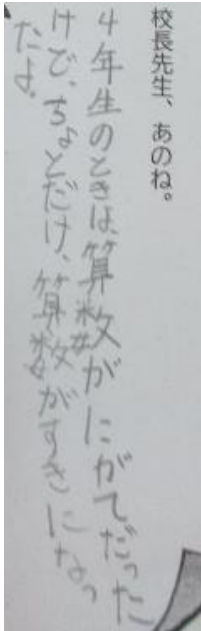 校長先生、あのね。
4年生のときは、算数がにがてだった
けど、ちょとだけ、算数がすきになっ
たよ。